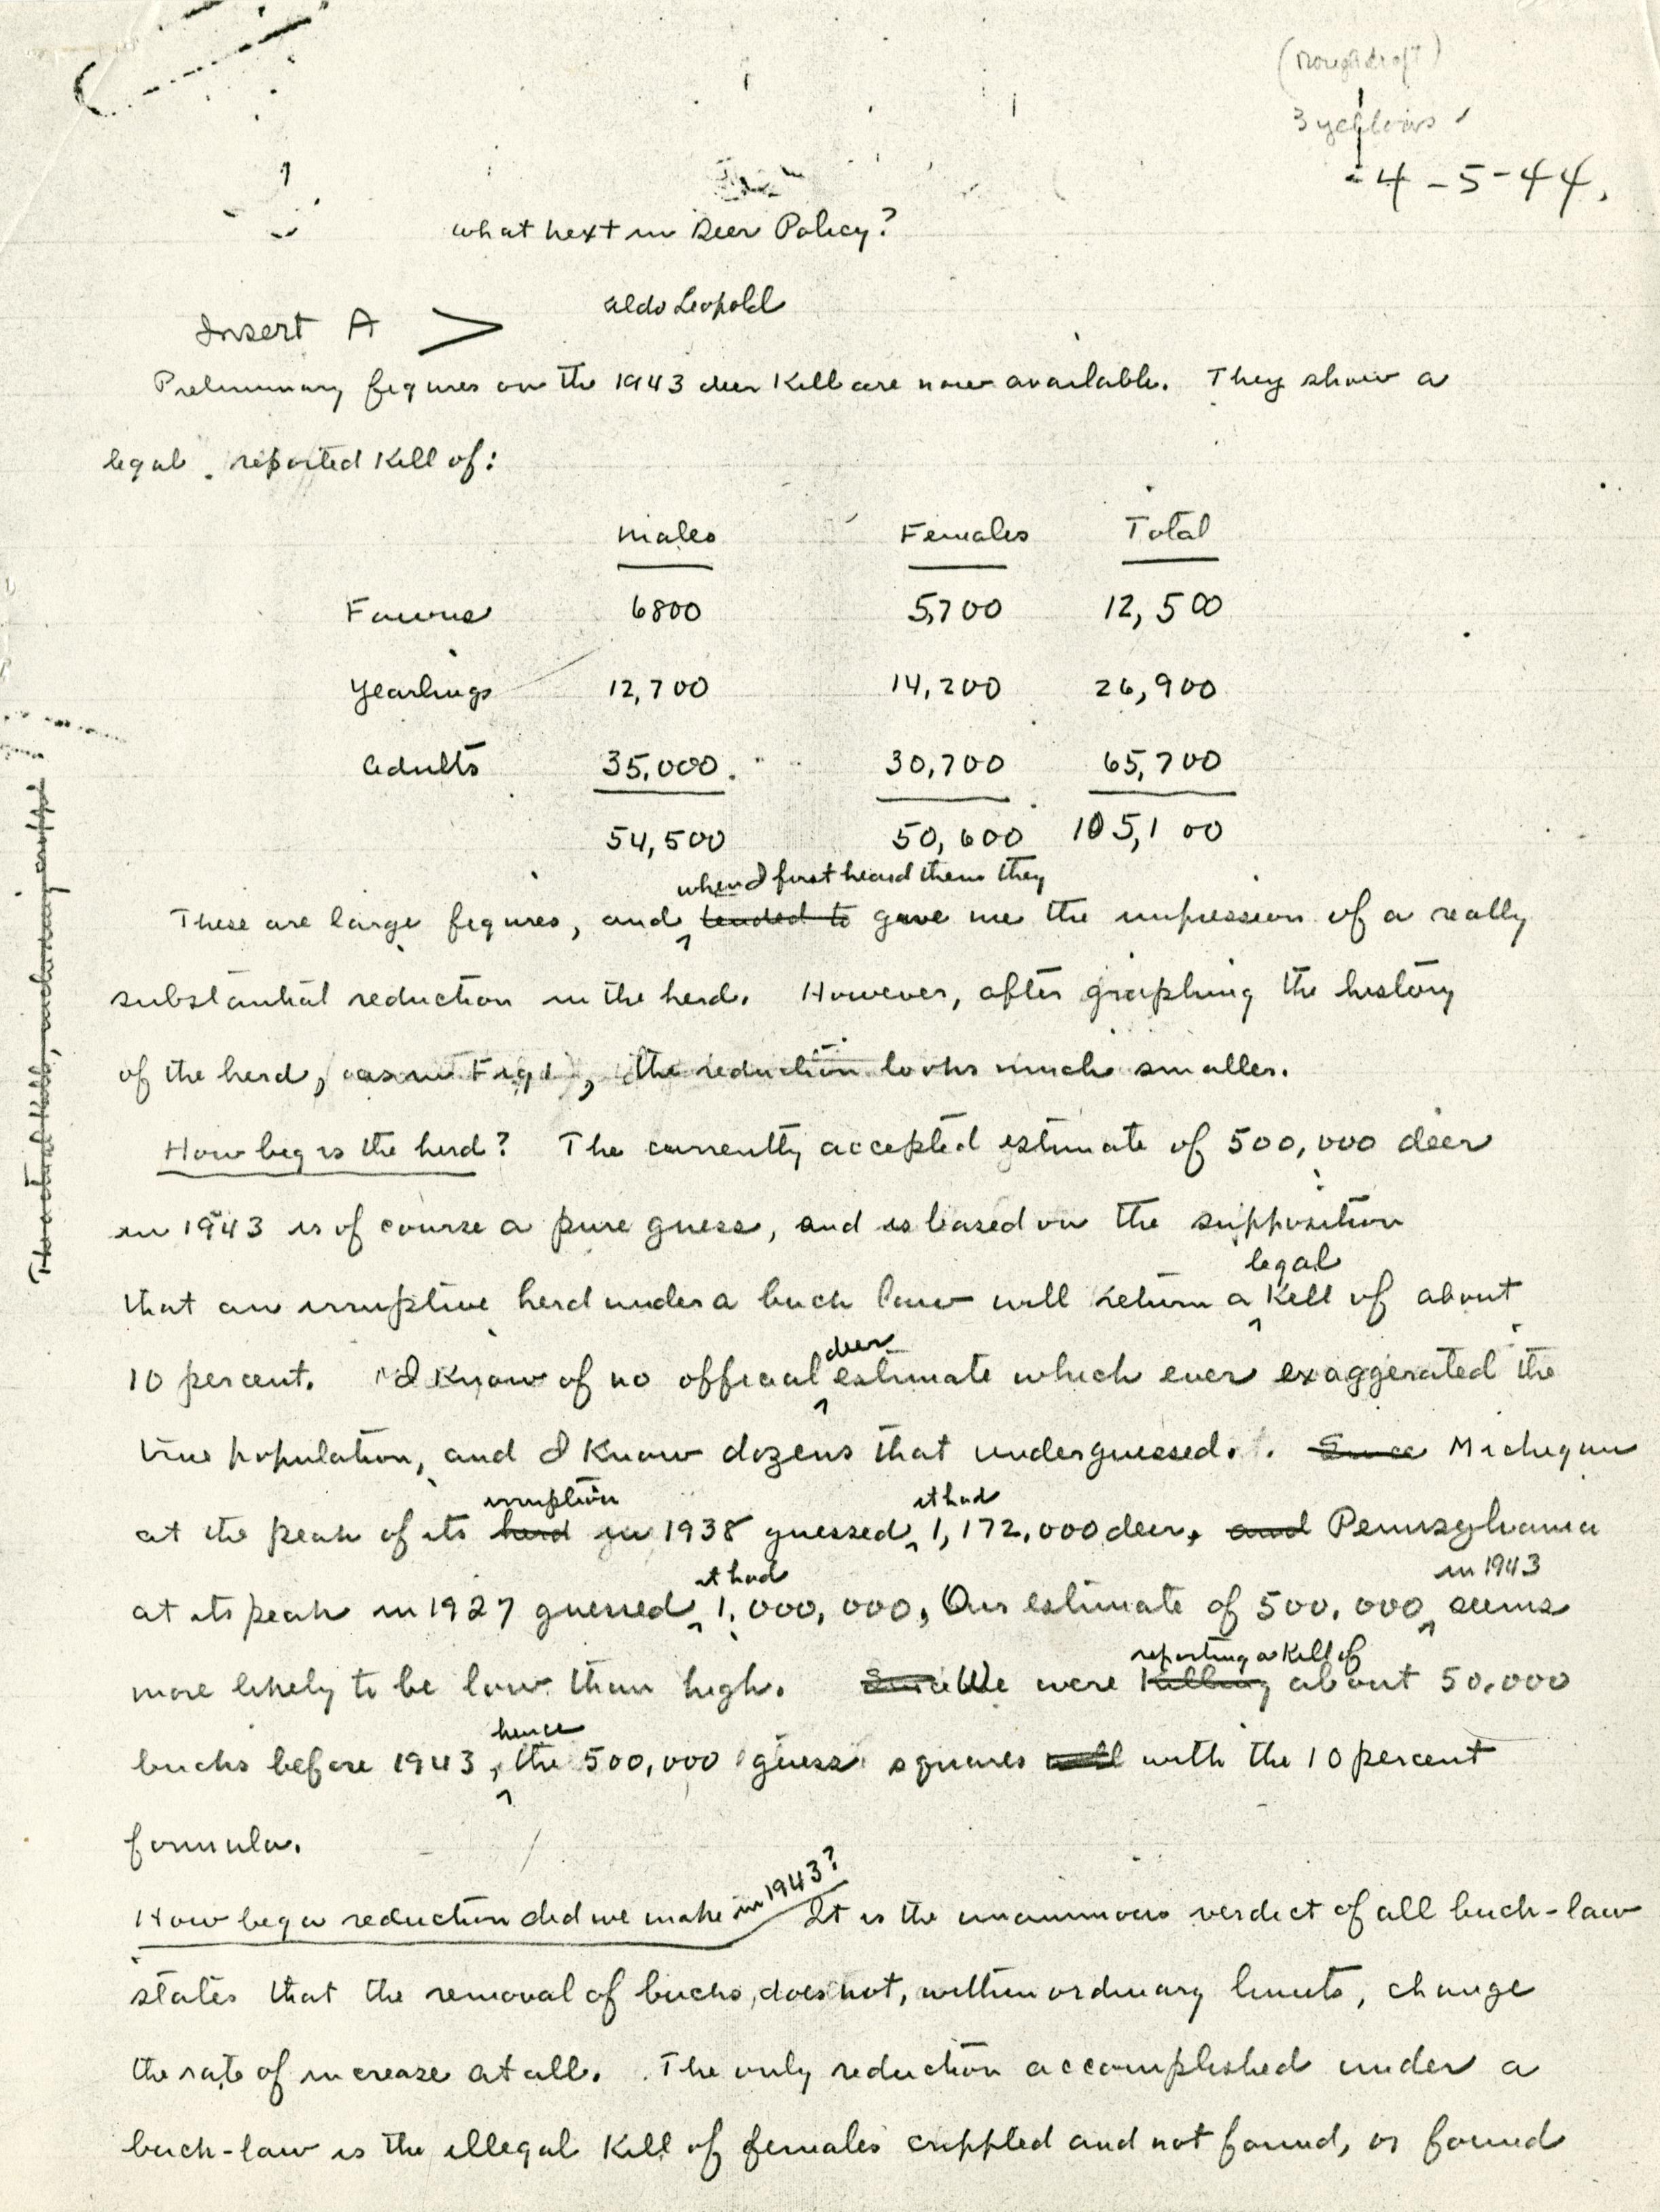 (Rough draft)
3 yellows
4-5-44.
What next in Deer Policy?
Aldo Leopold
Insert A >
Preliminary figures on the 1943 deer kill are now available. They show a
legal reported kill of:
Males Females Total
Fawns 6800 5,700 12,500
Yearlings 12,700 14,200 26,900
Adults 35,000. 30,700 65,700
54,500 50,600 105,100
when I first heard them they
These are large figures, and tended to gave me the impression of a really
substantial reduction in the herd. However, after graphing the history
of the herd, (as in Fig 1), the reduction looks much smaller.
How big is the herd? The currently accepted estimate of 500,000 deer
in 1943 is of course a pure guess, and is based on the supposition
legal
that an irruptive herd under a buck law will return a kill of about
deer
10 percent. I know of no official estimate which ever exaggerated the
true population, and I know dozens that underguessed. Since Michigan
irruption it had
at the peak of its herd in 1938 guessed 1,172,000 deer, and Pennsylvania
it had in 1943
at its peak in 1927 guessed 1,000,000, Our estimate of 500,000 seems
reporting a kill of
more likely to be low than high. Since We were killing about 50,000
hence
bucks before 1943, the 500,000 guess squares well with the 10 percent
formula.
in 1943?
How big a reduction did we make It is the unanimous verdict of all buck-law
states that the removal of bucks, does not, within ordinary limits, change
the rate of increase at all. The only reduction accomplished under a
buck-law is the illegal kill of females crippled and not found, or found
The actual kill, including cripples